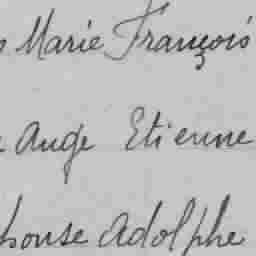 Marie François
Ange Etienne
honse Adolphe